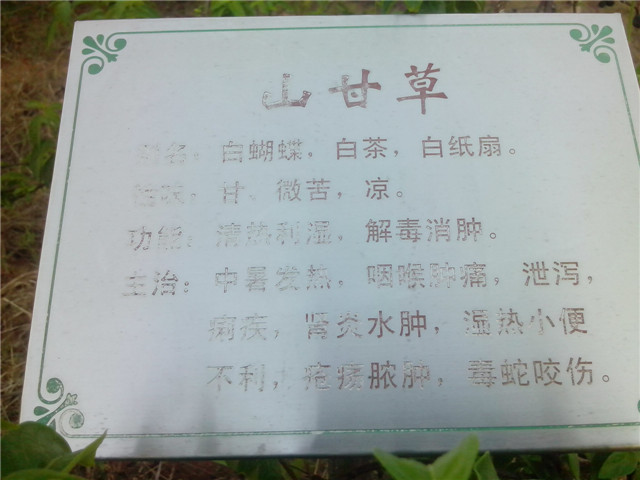 山甘草
别名：白蝴蝶，白茶，白纸扇。
性味：甘、微苦，凉。
功能：清热利湿，解毒消肿。
主治：中暑发热，咽喉肿痛，泄泻，
痢疾，肾炎水肿，湿热小便
不利，疮疡脓肿，毒蛇咬伤。